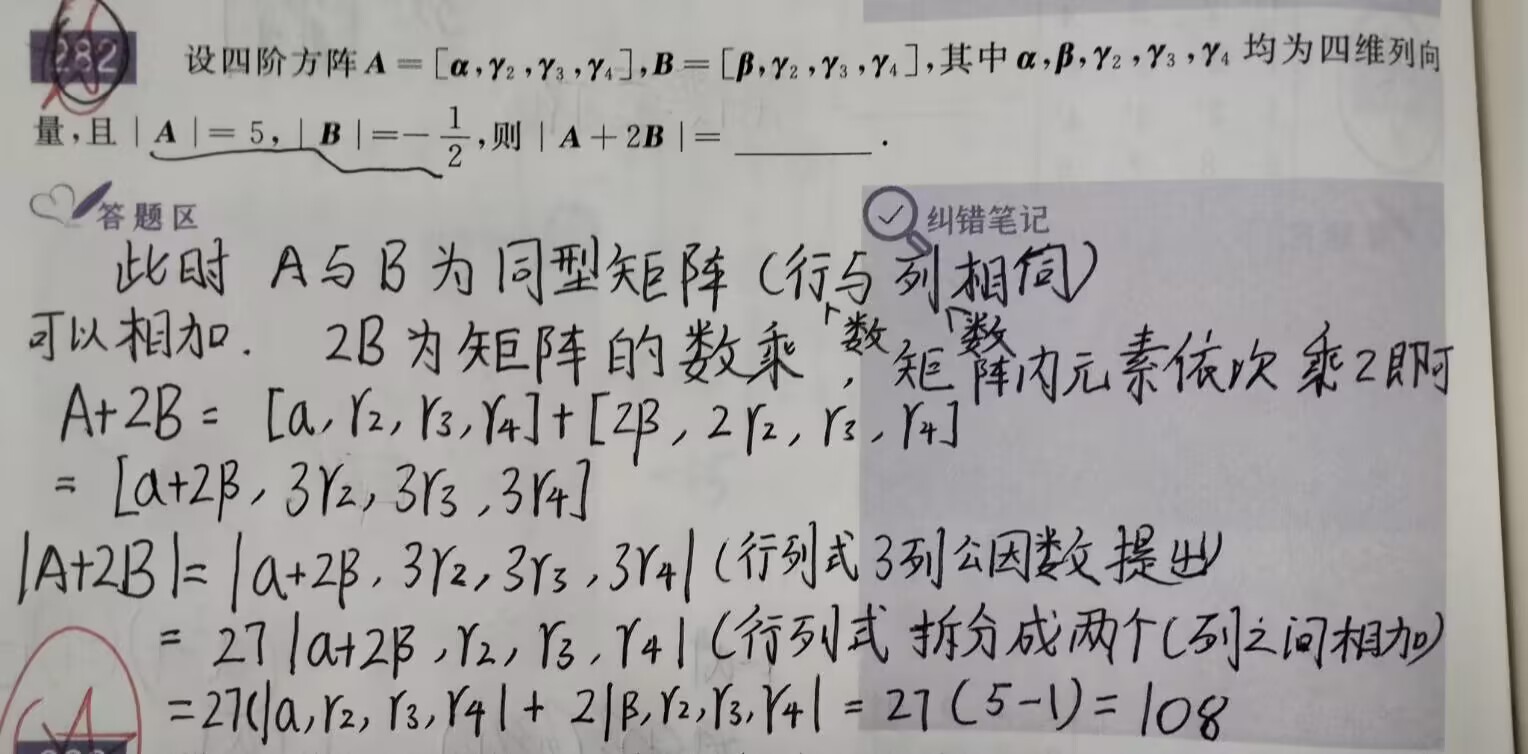 282 设四阶方阵 A = [α,γ₂,γ₃,γ₄],B = [β,γ₂,γ₃,γ₄],其中 α,β,γ₂,γ₃,γ₄ 均为四维列向
量,且 | A | = 5, | B | = -1/2,则 | A + 2B | = ________ .
答题区 纠错笔记
此时 A与B为同型矩阵(行数与列数相同)
可以相加. 2B为矩阵的数乘,矩阵内元素依次乘2即可
A+2B = [a, r₂, r₃, r₄] + [2β, 2r₂, r₃, r₄]
= [a+2β, 3r₂, 3r₃, 3r₄]
|A+2B| = |a+2β, 3r₂, 3r₃, 3r₄| (行列式3列公因数提出)
= 27|a+2β, r₂, r₃, r₄| (行列式拆分成两个(列之间相加)
=27(|a, r₂, r₃, r₄| + 2|β, r₂, r₃, r₄| = 27(5-1) = 108